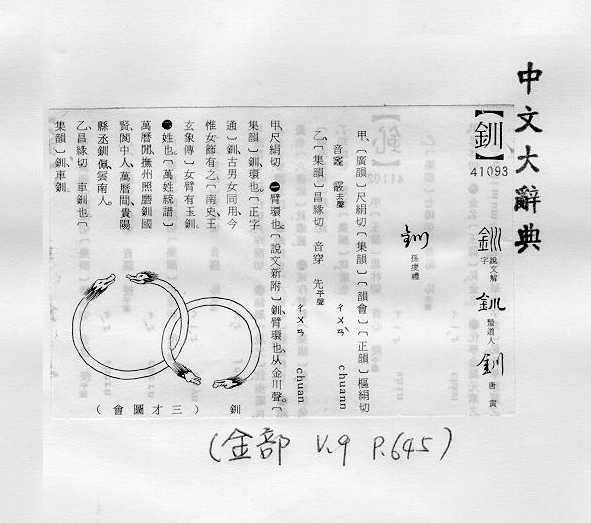 中文大辭典
【釧】
41093
釧 說文解字
釧 醫道人
釧 唐寅
釧 孫虔禮
甲、〔廣韻〕尺絹切〔集韻〕〔韻會〕〔正韻〕樞絹切
音竁 霰去聲 ㄔㄨㄢˋ chuann
乙、〔集韻〕昌緣切 音穿 先平聲
ㄔㄨㄢ chuan
甲、尺絹切 ㊀臂環也。〔說文新附〕釧、臂環也、从金川聲。〔
集韻〕釧、環也。〔正字
通〕釧、古男女同用、今
惟女飾有之。〔南史、王
玄象傳〕女臂有玉釧。
㊁姓也。〔萬姓統譜〕
萬曆間、撫州照磨釧國
賢、閩中人、萬曆間、貴陽
縣丞釧佩、雲南人。
乙、昌緣切 車釧也。〔
集韻〕釧、車釧。
釧 (三才圖會)
(金部 V.9 P.645)